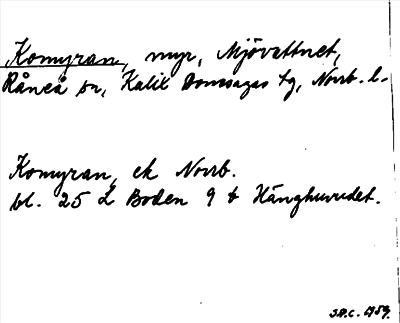 Komyran, myr, Mjövattnet,
Råneå sn, Kalix Domsagas tg, Norrb. l.
Komyran, ek Norrb.
bl. 25 L Boden 9 b Hänghuvudet.
J.A.C. 1959.